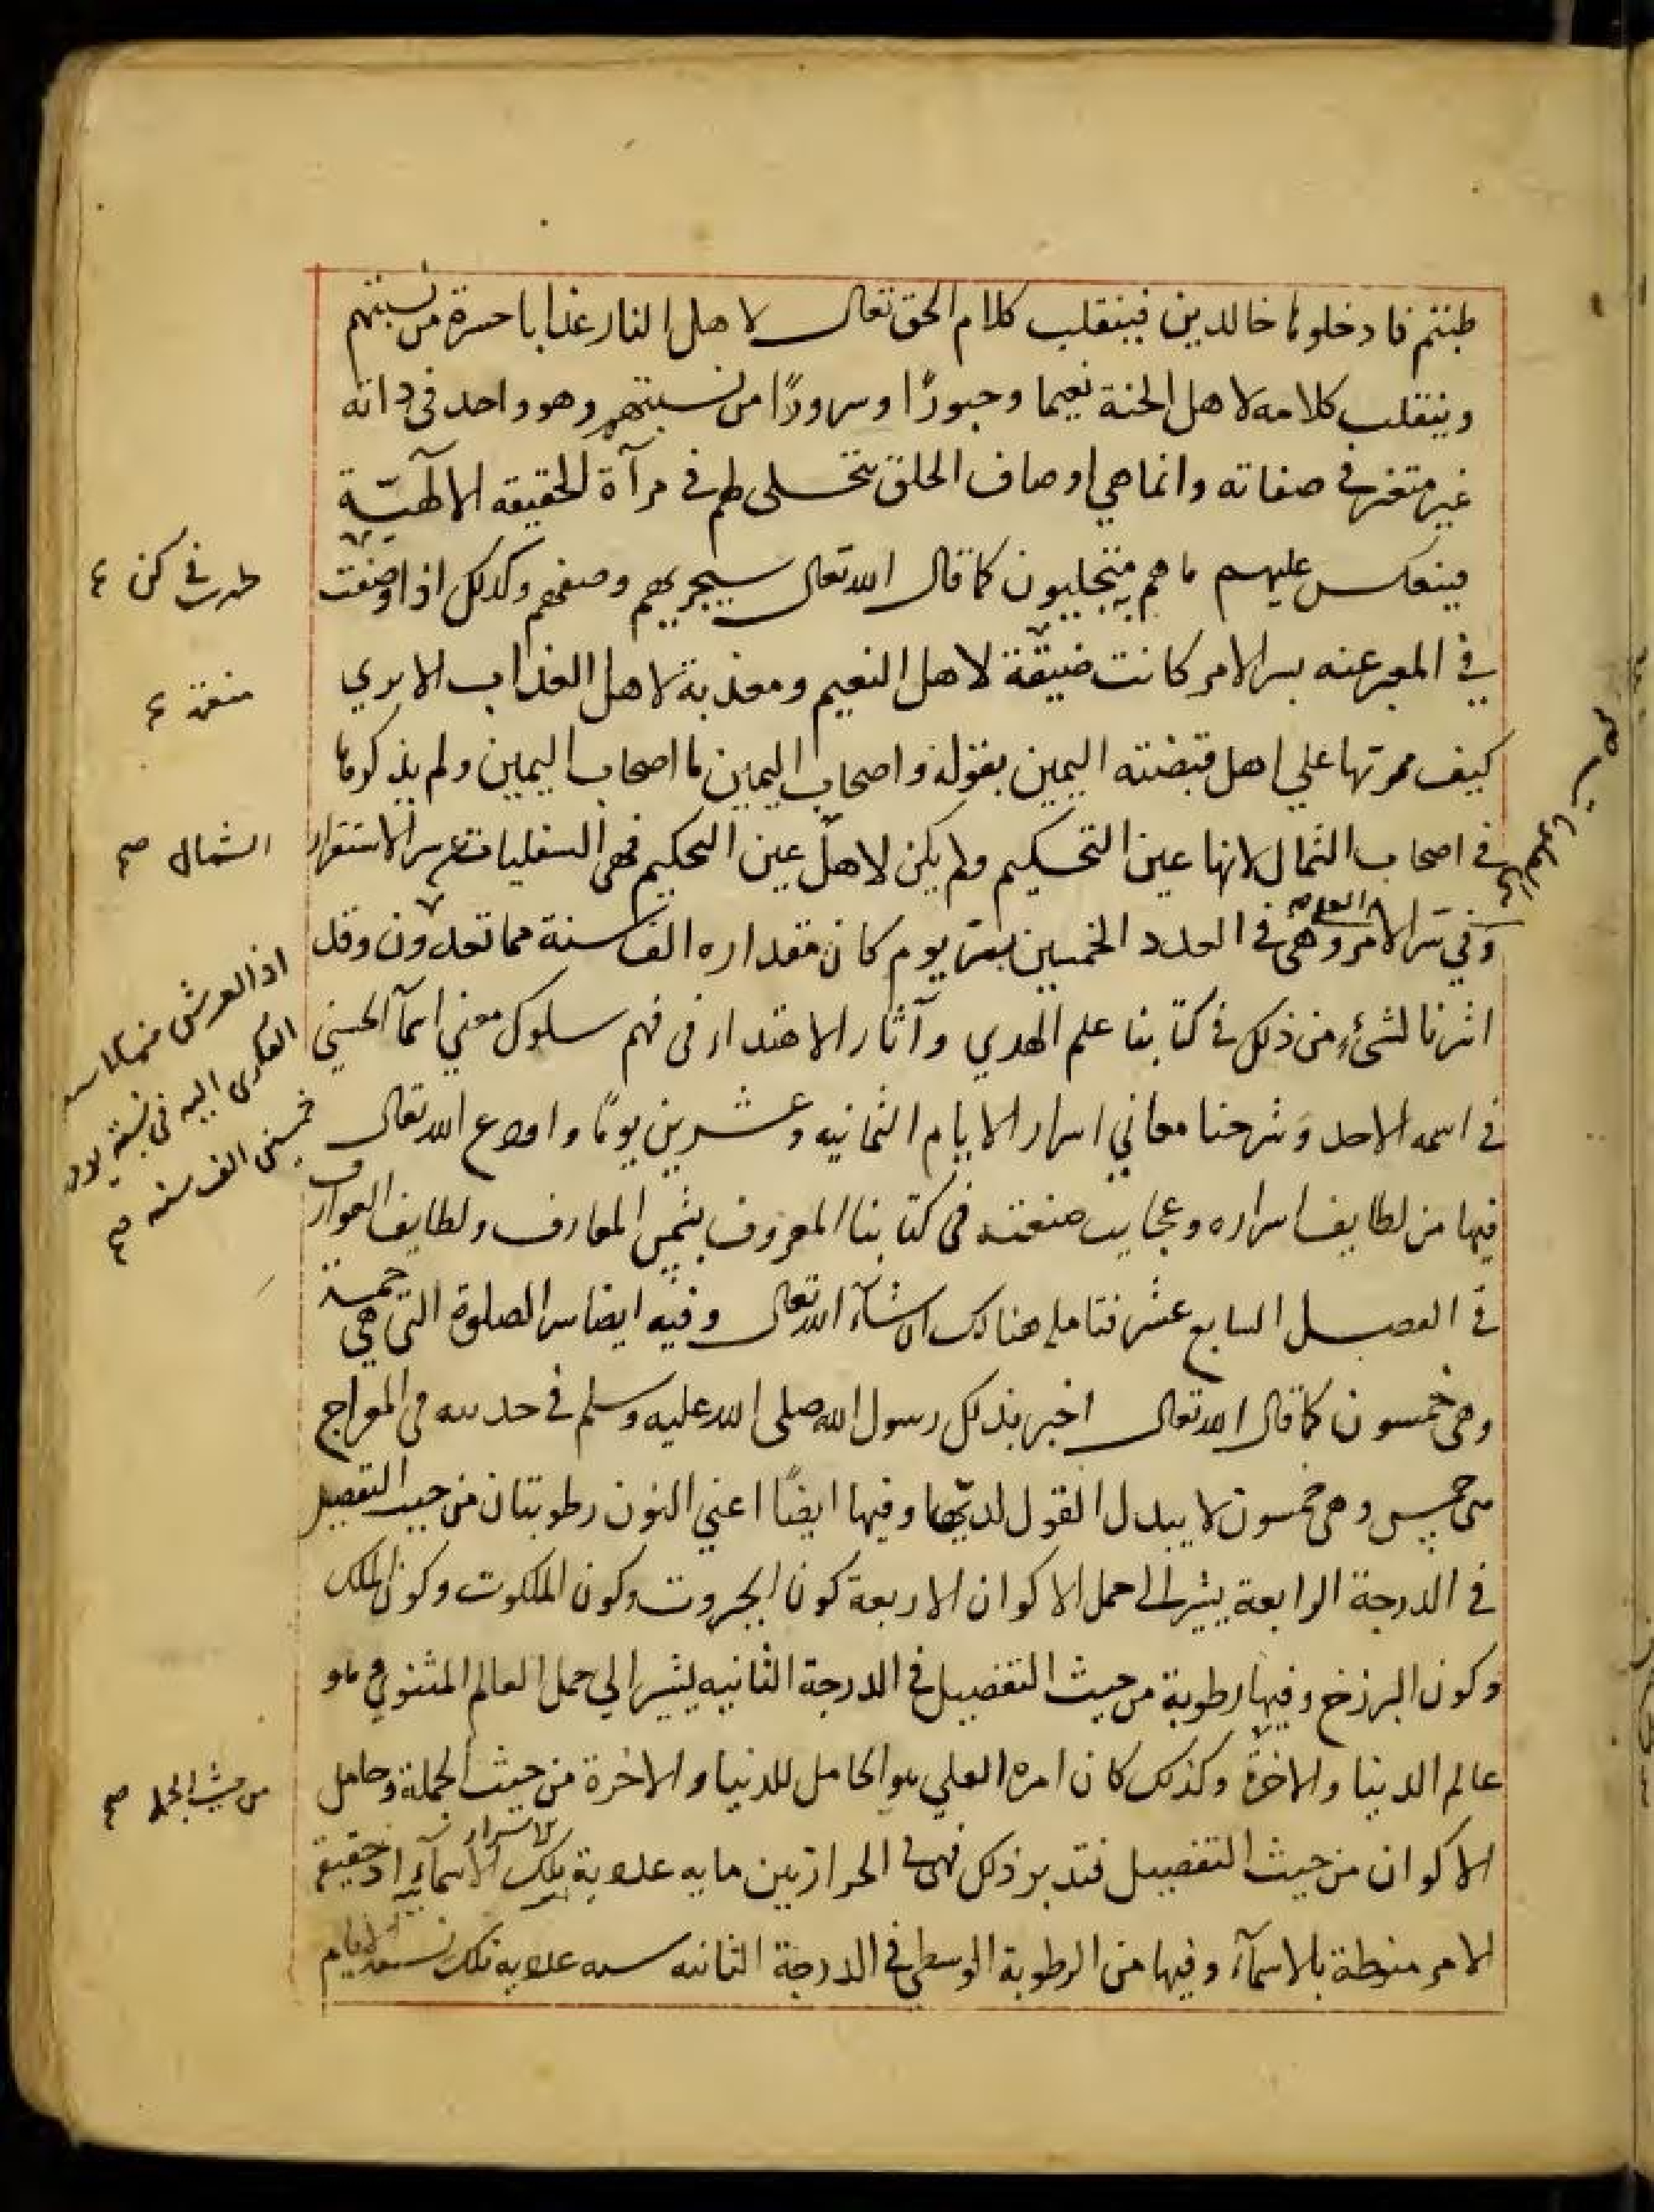 طبتم فادخلوها خالدين فينقلب كلام الحق تعالى لاهل النار عذابا حسرة من نسبتهم
وينقلب كلامه لاهل الجنة نعيما وحبورًا وسرورًا من نسبتهم وهو واحد فى ذاته
غير متغير في صفاته وانما هي اوصاف الخلق تتجلى لهم في مرآة الحقيقة الالهيّة
فينعكس عليهم ما هم به متجلييون كما قال الله تعالى سيجزيهم وصفهم وكذلك اذا وضعت
في المعبر عنه بسر الامر كانت ضيقة لاهل النعيم ومعذبة لاهل العذاب الا يرى
كيف مرتها على اهل قبضته اليمين بقوله واصحاب اليمين ما اصحاب اليمين ولم يذكرها
في اصحاب الشمال لانها عين التحكيم ولم يكن لاهل عين التحكيم فهى السفليات سر الاستقرار
وفي سر الامر وهى في العدد الخمسين يوم كان مقداره الف سنة مما تعدون وقد
اشرنا لشئء من ذلك في كتابنا علم الهدي وآثار الاهتداء فى فهم سلوك معني اسمآ الحسني
في اسمه الاحد وشرحنا معاني اسرار الايام الثمانيه وعشرين يومًا واودع الله تعالى
فيها من لطايف اسراره وعجايب صنعته فى كتابنا المعروف بشمس المعارف ولطايف العوارف
في الفصل السابع عشر فتامله هناك ان شآء الله تعالى وفيه ايضا سر الصلوة التى هي خمسة
وهى خمسون كما قال الله تعالى اخبر بذلك رسول الله صلى الله عليه وسلم في حديثه فى المعراج
هى خمس وهى خمسون لا يبدل القول لدي وفيها ايضًا اعني النون رطوبتان من حيث التفصيل
في الدرجة الرابعة يشير الى حمل الاكوان الاربعة كون الجبروت وكون الملكوت وكون الملك
وكون البرزخ وفيها رطوبة من حيث التفصيل في الدرجة الثانيه يشير الى حمل العالم المثنوي وهو
عالم الدينا والاخرة وكذلك كان امره العلي هو الحامل للدنيا والاخرة من حيث الجملة وحامل
الاكوان من حيث التفصيل فتدبر ذلك فهى في الحرارتين مايه علاوية تلك الاسمآء اذ حقيقة
الامر منوطة بالاسمآء وفيها من الرطوبة الوسطى في الدرجة الثانيه علاويه تلك
الشمال صح
اذ العرش
اليه فى
خمسين الف سنه صح
من حيث الجملة صح